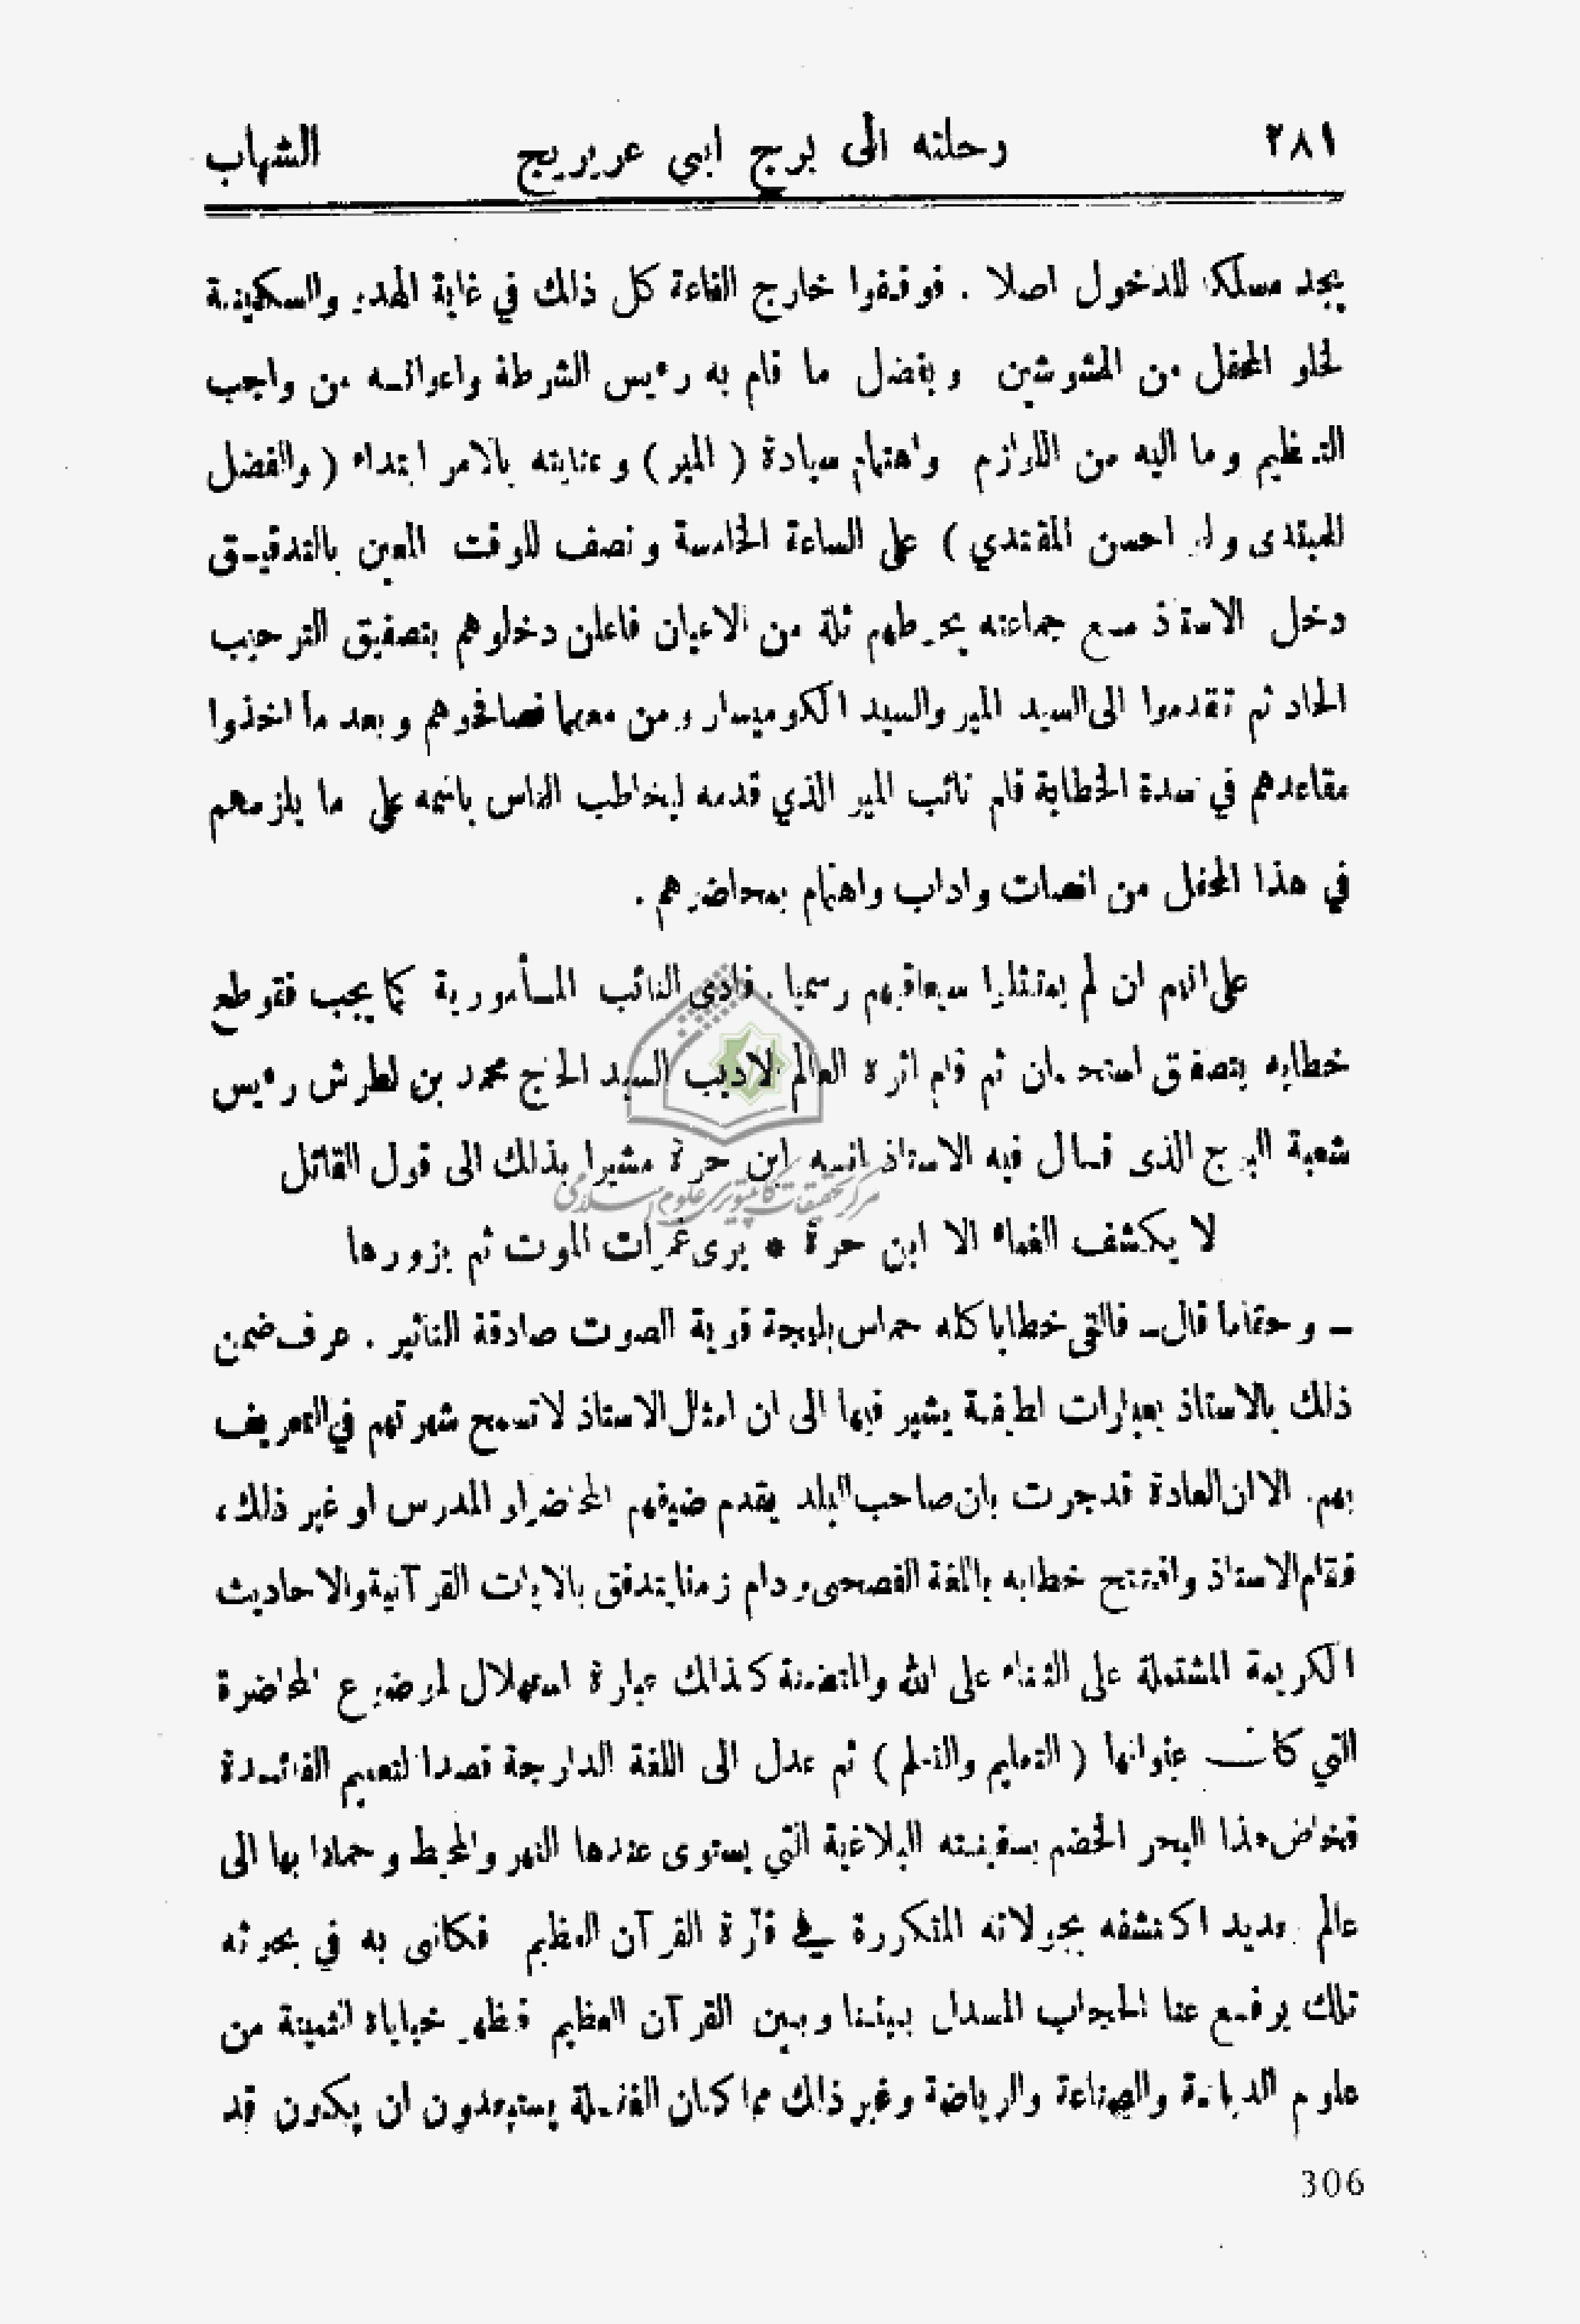 ٢٨١ رحلته الى برج ابي عريريج الشهاب
يجد مسلكا للدخول اصلا . فوقفوا خارج القاعة كل ذلك في غاية الهدو والسكينة
لخلو المحفل من المشوشين وبفضل ما قام به رءيس الشرطة واعوانه من واجب
التنظيم وما اليه من اللوازم واهتمام سيادة ( المير ) وعنايته بالامر ابتداء ( والفضل
للمبتدى ولو احسن المقتدي ) على الساعة الخامسة ونصف للوقت المعين بالتدقيق
دخل الاستاذ مع جماعته يحوطهم ثلة من الاعيان فاعلن دخلوهم بتصفيق الترحيب
الحاد ثم تقدموا الى السيد المير والسيد الكوميسار ومن معهما فصافحوهم وبعد ما اخذوا
مقاعدهم في سدة الخطابة قام نائب المير الذي قدمه ليخاطب الناس باسمه على ما يلزمهم
في هذا المحفل من انصات واداب واهتمام بمحاضرهم .
على انهم ان لم يمتثلوا سيعاقبهم رسميا . فادى النائب المـأمورية كما يجب فقوطع
خطابه بتصفيق استحسان ثم قام اثره العالم الاديب السيد الحاج محمد بن لطرش رءيس
شعبة البرج الذى قال فيه الاستاذ انه ابن حرة مشيرا بذلك الى قول القائل
لا يكشف الغماء الا ابن حرة * يرى غمرات الموت ثم يزورها
ـ وحقا ما قال ـ فالقى خطابا كله حماس بلهجة قوية الصوت صادقة التاثير . عرف ضمن
ذلك بالاستاذ بعبارات لطيفة يشير فيها الى ان امثال الاستاذ لا تسمح شهرتهم في التعريف
بهم . الا ان العادة قد جرت بان صاحب البلد يقدم ضيفهم المحاضر او المدرس او غير ذلك ،
فقام الاستاذ وافتتح خطابه باللغة الفصحى ودام زمنا يتدفق بالايات القرآنية والاحاديث
الكريمة المشتملة على الثناء على الله والمتضمنة كذالك عبارة استهلال لموضوع المحاضرة
التي كان عنوانها ( التعليم والتعلم ) ثم عدل الى اللغة الدارجة قصدا لتعميم الفائدة
فخاض هذا البحر الخضم بسفينته البلاغية التي يستوى عندها النهر والمحيط وحملنا بها الى
عالم جديد اكتشفه بجولاته المتكررة في قارة القرآن العظيم فكانى به في بحوثه
تلك يرفع عنا الحجاب المسدل بيننا وبين القرآن العظيم فظهر خباياه الثمينة من
علوم الديانة والصناعة والرياضة وغير ذالك مما كان الغفلة يستبعدون ان يكون قد
مركز تحقيقات كامپيوتري علوم اسلامي
306